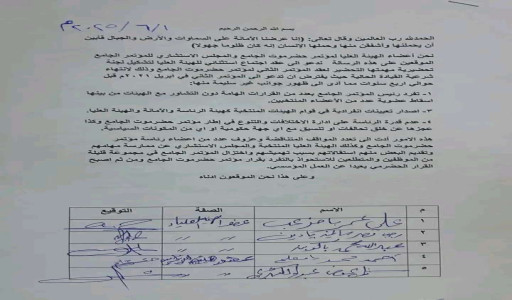 بسم الله الرحمن الرحيم
٢٠٢٥/٦/١م
الحمدلله رب العالمين وقال تعالى: (إنا عرضنا الأمانة على السماوات والأرض والجبال فأبين
أن يحملنها وأشفقن منها وحملها الانسان إنه كان ظلوما جهولا)
نحن أعضاء الهيئة العليا لمؤتمر حضرموت الجامع والمجلس الاستشاري للمؤتمر الجامع
الموقعين على هذه الرسالة ندعو الى عقد اجتماع استثنائي للهيئة العليا لتشكيل لجنة
تحضيرية مهمتها التحضير لعقد المؤتمر الثاني لمؤتمر حضرموت الجامع وذلك لإنتهاء
شرعية القيادة الحالية حيث يفترض ان ندعو الى المؤتمر الثاني في ابريل ٢٠٢١م قبل
حوالي اربع سنوات مما أدى الى ظهور جوانب غير سليمة منها:
١- تفرد رئيس المؤتمر الجامع بعدد من القرارات الهامة دون التشاور مع الهيئات من بينها
اسقاط عضوية عدد من الأعضاء المنتخبين.
٣- اصدار تعيينات انفرادية في قوام الهيئات المنتخبة كهيئة الرئاسة والأمانة والهيئة العليا.
٤- عدم قدرة الرئاسة على ادارة الاختلافات والتنوع في إطار مؤتمر حضرموت الجامع وكذا
عجزها عن خلق تحالفات او تنسيق مع اي جهة حكومية او اي من المكونات السياسية.
هذه الامور أدت الى تعدد المواقف المتناقضة وعزوف عدد من اعضاء رئاسة مؤتمر
حضرموت الجامع وكذلك الهيئة العليا المنتخبة والمجلس الاستشاري عن ممارسة مهامهم
وتقديم البعض منهم استقالاتهم بسبب تهميشهم واختزال المؤتمر الجامع في مجموعة قليلة
من الموظفين والمتطلعين للاستحواذ بالتفرد بقرار مؤتمر حضرموت الجامع ومن ثم اصبح
القرار الحضرمي بعيدا عن العمل المؤسسي.
وعلى هذا نحن الموقعون ادناه
م الاسم الصفة التوقيع
١ علي عمر
٢
٣ عبدالله محمد
٤ احمد محمد
٥